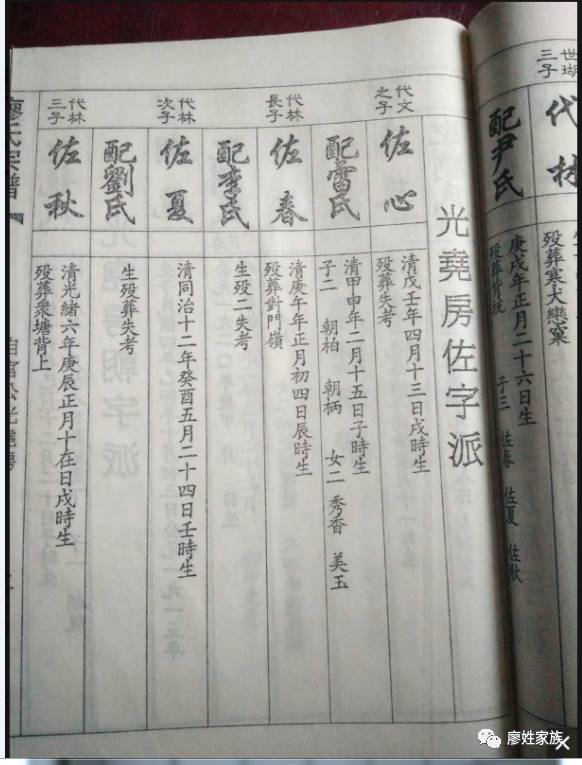 世瑚
三子
代林
殁葬寒大戀窠
配尹氏
庚戌年正月二十六日生
子三 佐春 佐夏 佐秋
光堯房佐字派
代文
之子
佐心
清戊壬年四月十三日戌時生
殁葬失考
配雷氏
清甲申年二月十五日子時生
子二 朝柏 朝柄 女二 秀香 美玉
代林
長子
佐春
清庚午年正月初四日辰時生
殁葬對門嶺
配李氏
生殁二失考
代林
次子
佐夏
清同治十二年癸酉五月二十四日壬時生
配劉氏
生殁葬失考
代林
三子
佐秋
清光緒六年庚辰正月十在日戌時生
殁葬衆塘背上
廖氏宗譜
廖姓家族